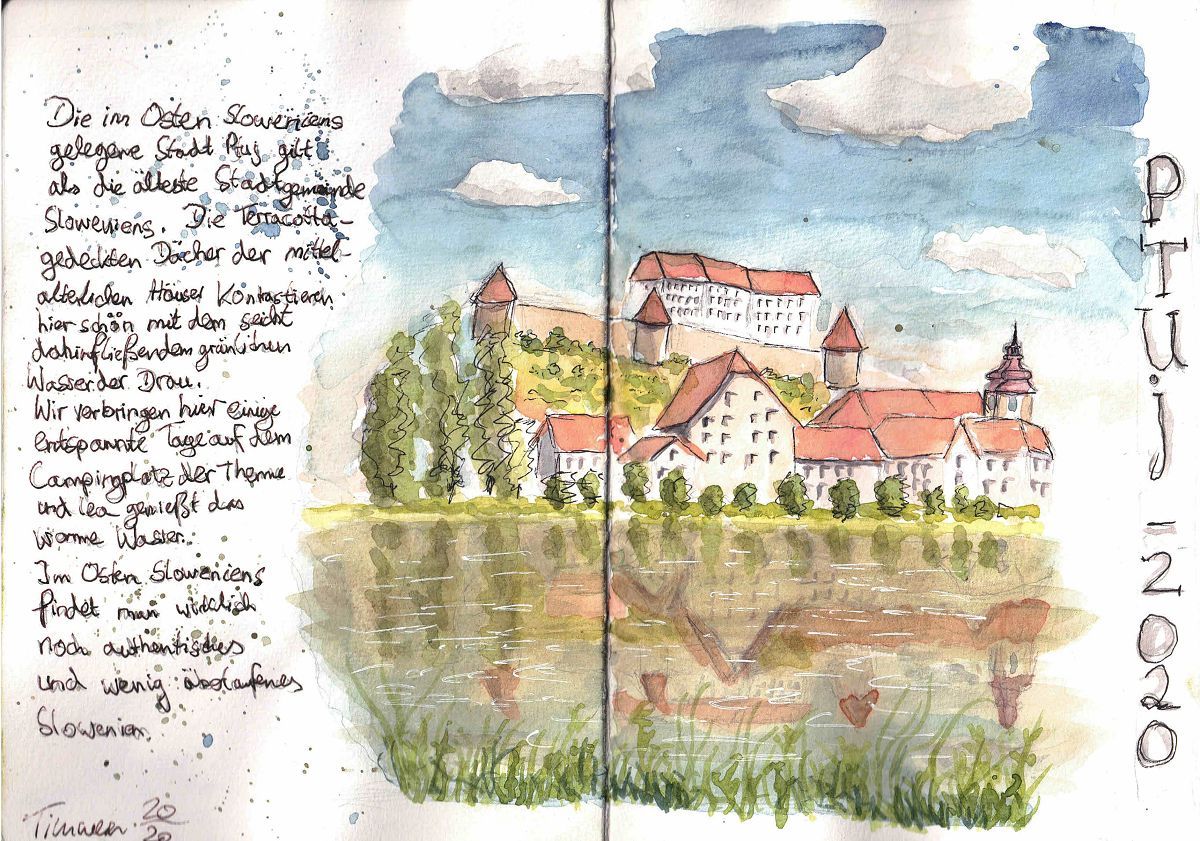 Die im Osten Sloweniens
gelegene Stadt Ptuj gilt
als die älteste Stadtgemeinde
Sloweniens. Die Terracotta-
gedeckten Dächer der mittel-
alterlichen Häuser Kontastieren
hier schön mit dem seicht
dahinfließendem grünlichen
Wasser der Drau.
Wir verbringen hier einige
entspannte Tage auf dem
Campingplatz der Therme
und Lea genießt das
warme Wasser.
Im Osten Sloweniens
findet man wirklich
noch authentisches
und wenig überlaufenes
Slowenien.
20
20
PTUj - 2020